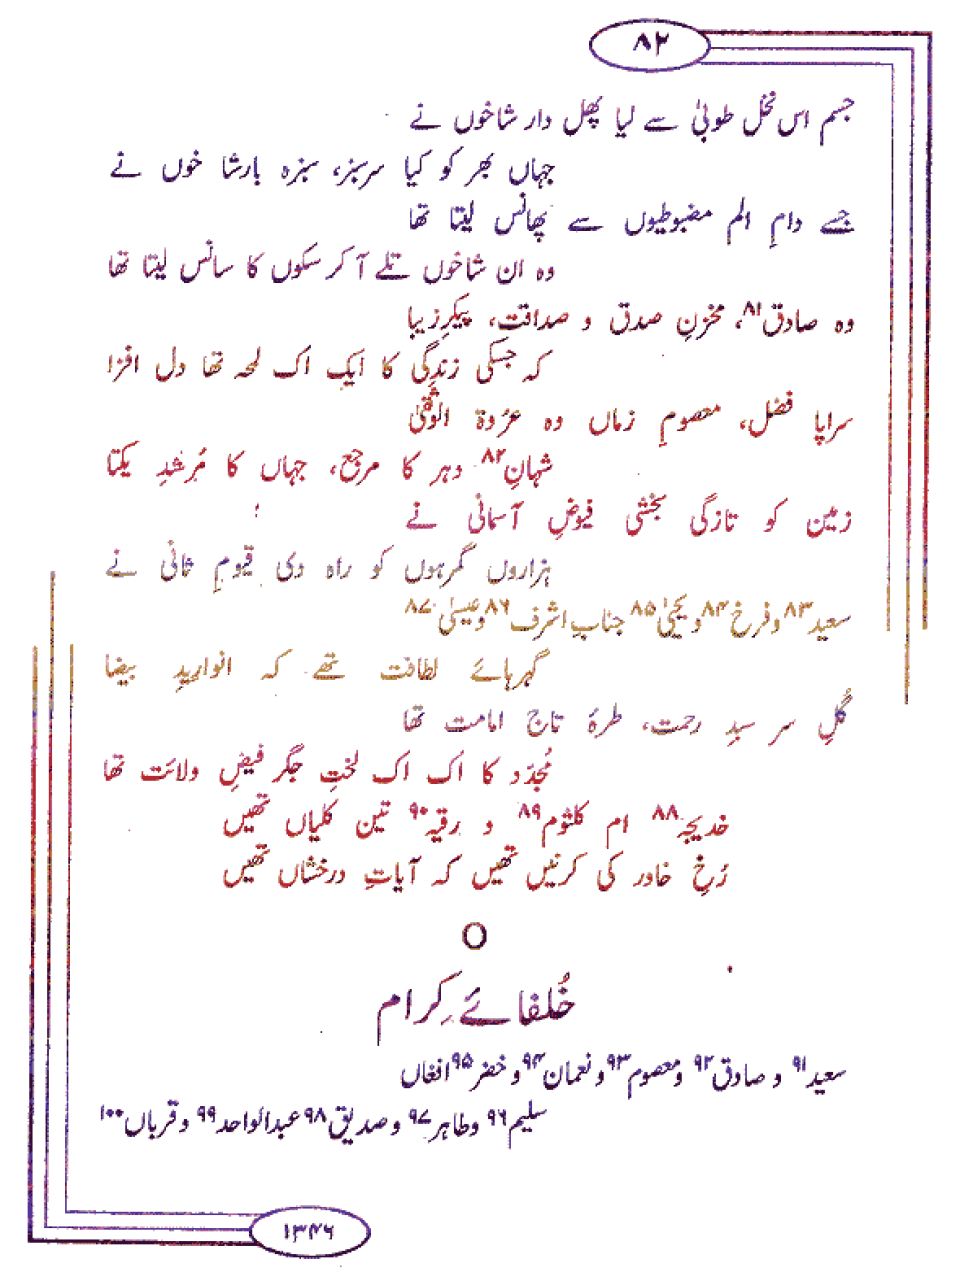 ۸۲
جسم اس نخل طوبیٰ سے لیا پھل دار شاخوں نے
جہاں بھر کو کیا سرسبز، سبزہ بارشا خوں نے
جسے دامِ الم مضبوطیوں سے پھانس لیتا تھا
وہ ان شاخوں تلے آ کر سکوں کا سانس لیتا تھا
وہ صادق۸۱، مخزنِ صدق و صداقت، پیکرِ زیبا
کہ جسکی زندگی کا ایک اک لمحہ تھا دل افزا
سراپا فضل، معصومِ زماں وہ عرٗوۃ الوثقیٰ
شہانِ۸۲ دہر کا مرجع، جہاں کا مُرشدِ یکتا
زمین کو تازگی بخشی فیوضِ آسمانی نے
ہزاروں گمرہوں کو راہ دی قیومِ ثانی نے
سعید۸۳ و فرخ۸۴ و یحییٰ۸۵ جنابِ اشرف۸۶ و عیسیٰ۸۷
گہرہائے لطافت تھے کہ انواریدِ بیضا
گُلِ سر سبدِ رحمت، طرۂ تاج امامت تھا
مُجدّد کا اک اک لختِ جگر فیضِ ولائت تھا
خدیجہ۸۸ ام کلثوم۸۹ و رقیہ۹۰ تین کلیاں تھیں
رُخِ خاور کی کرنیں تھیں کہ آیاتِ درخشاں تھیں
O
خُلفائے کِرام
سعید۹۱ و صادق۹۲ و معصوم۹۳ و نعمان۹۴ و خضر۹۵ افغاں
سلیم۹۶ و طاہر۹۷ و صدیق۹۸ عبدالواحد۹۹ و قرباں۱۰۰
۱۳۴۶